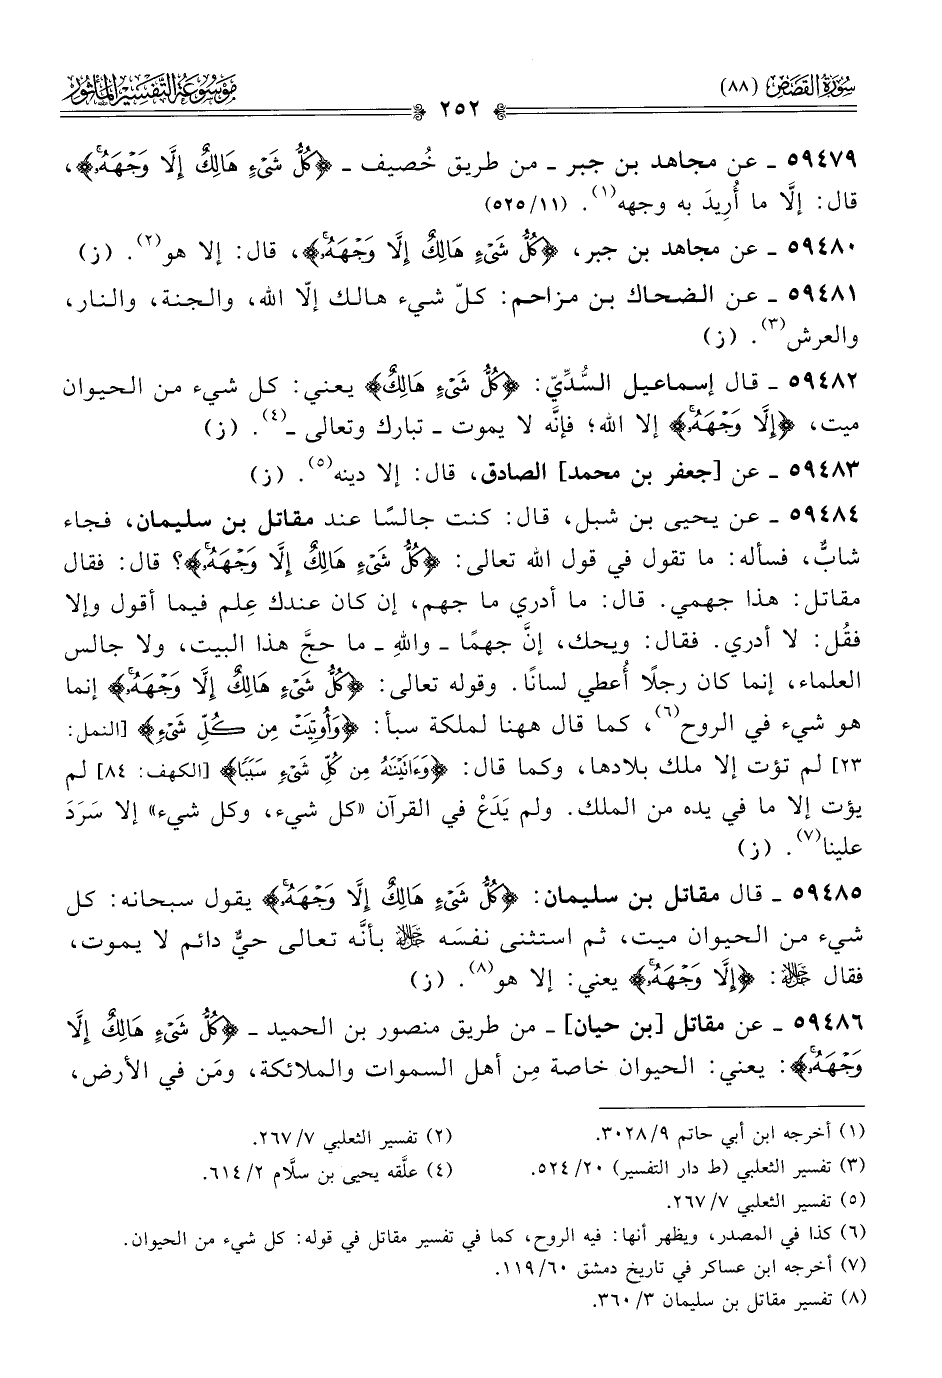 سُورَةُ القَصَصِ (٨٨)
٢٥٢
مَوْسُوعَةُ التَّفْسِيرِ المَأْثُورِ
٥٩٤٧٩ ـ عن مجاهد بن جبر ـ من طريق خُصيف ـ ﴿كُلُّ شَيْءٍ هَالِكٌ إِلَّا وَجْهَهُ﴾،
قال: إلَّا ما أُرِيدَ به وجهه(١). (١١/٥٢٥)
٥٩٤٨٠ ـ عن مجاهد بن جبر، ﴿كُلُّ شَيْءٍ هَالِكٌ إِلَّا وَجْهَهُ﴾، قال: إلا هو(٢). (ز)
٥٩٤٨١ ـ عن الضحاك بن مزاحم: كلّ شيء هالك إلّا الله، والجنة، والنار،
والعرش(٣). (ز)
٥٩٤٨٢ ـ قال إسماعيل السُّدِّيّ: ﴿كُلُّ شَيْءٍ هَالِكٌ﴾ يعني: كل شيء من الحيوان
ميت، ﴿إِلَّا وَجْهَهُ﴾ إلا الله؛ فإنَّه لا يموت ـ تبارك وتعالى ـ(٤). (ز)
٥٩٤٨٣ ـ عن [جعفر بن محمد] الصادق، قال: إلا دينه(٥). (ز)
٥٩٤٨٤ ـ عن يحيى بن شبل، قال: كنت جالسًا عند مقاتل بن سليمان، فجاء
شابٌّ، فسأله: ما تقول في قول الله تعالى: ﴿كُلُّ شَيْءٍ هَالِكٌ إِلَّا وَجْهَهُ﴾؟ قال: فقال
مقاتل: هذا جهمي. قال: ما أدري ما جهم، إن كان عندك عِلم فيما أقول وإلا
فقُل: لا أدري. فقال: ويحك، إنَّ جهمًا ـ واللهِ ـ ما حجَّ هذا البيت، ولا جالس
العلماء، إنما كان رجلًا أُعطي لسانًا. وقوله تعالى: ﴿كُلُّ شَيْءٍ هَالِكٌ إِلَّا وَجْهَهُ﴾ إنما
هو شيء في الروح(٦)، كما قال ههنا لملكة سبأ: ﴿وَأُوتِيَتْ مِن كُلِّ شَيْءٍ﴾ [النمل:
٢٣] لم تؤت إلا ملك بلادها، وكما قال: ﴿وَءَاتَيْنَٰهُ مِن كُلِّ شَيْءٍ سَبَبًا﴾ [الكهف: ٨٤] لم
يؤت إلا ما في يده من الملك. ولم يَدَعْ في القرآن «كل شيء، وكل شيء» إلا سَرَدَ
علينا(٧). (ز)
٥٩٤٨٥ ـ قال مقاتل بن سليمان: ﴿كُلُّ شَيْءٍ هَالِكٌ إِلَّا وَجْهَهُ﴾ يقول سبحانه: كل
شيء من الحيوان ميت، ثم استثنى نفسَه ﷻ بأنَّه تعالى حيٌّ دائم لا يموت،
فقال ﷻ: ﴿إِلَّا وَجْهَهُ﴾ يعني: إلا هو(٨). (ز)
٥٩٤٨٦ ـ عن مقاتل [بن حيان] ـ من طريق منصور بن الحميد ـ ﴿كُلُّ شَيْءٍ هَالِكٌ إِلَّا
وَجْهَهُ﴾: يعني: الحيوان خاصة مِن أهل السموات والملائكة، ومَن في الأرض،
(١) أخرجه ابن أبي حاتم ٣٠٢٨/٩. (٢) تفسير الثعلبي ٢٦٧/٧.
(٣) تفسير الثعلبي (ط دار التفسير) ٥٢٤/٢٠. (٤) علَّقه يحيى بن سلَّام ٦١٤/٢.
(٥) تفسير الثعلبي ٢٦٧/٧.
(٦) كذا في المصدر، ويظهر أنها: فيه الروح، كما في تفسير مقاتل في قوله: كل شيء من الحيوان.
(٧) أخرجه ابن عساكر في تاريخ دمشق ١١٩/٦٠.
(٨) تفسير مقاتل بن سليمان ٣٦٠/٣.